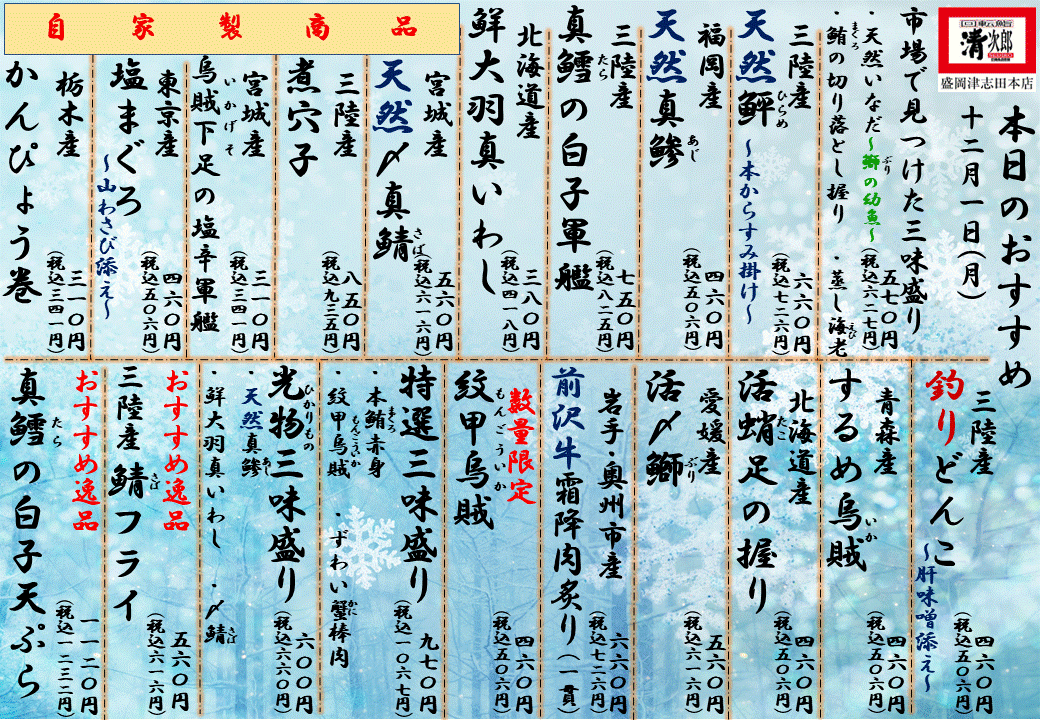 回転鮨
清次郎
盛岡津志田本店
本日のおすすめ
十二月一日(月)
市場で見つけた三味盛り
・天然いなだ~鰤の幼魚~
ぶり
・鮪の切り落とし握り ・蒸し海老
まぐろ
えび
五七〇円
(税込六二七円)
三陸産
天然鮃
ひらめ
~本からすみ掛け~
六六〇円
(税込七二六円)
福岡産
天然真鯵
あじ
四六〇円
(税込五〇六円)
三陸産
真鱈の白子軍艦
たら
七五〇円
(税込八二五円)
北海道産
鮮大羽真いわし
三八〇円
(税込四一八円)
自家製商品
宮城産
天然〆真鯖
さば
五六〇円
(税込六一六円)
三陸産
煮穴子
八五〇円
(税込九三五円)
宮城産
烏賊下足の塩辛軍艦
いかげそ
三一〇円
(税込三四一円)
東京産
塩まぐろ
~山わさび添え~
四六〇円
(税込五〇六円)
栃木産
かんぴょう巻
三一〇円
(税込三四一円)
三陸産
釣りどんこ
~肝味噌添え~
四六〇円
(税込五〇六円)
青森産
するめ烏賊
いか
四六〇円
(税込五〇六円)
北海道産
活蛸足の握り
たこ
四六〇円
(税込五〇六円)
愛媛産
活〆鰤
ぶり
五六〇円
(税込六一六円)
岩手・奥州市産
前沢牛霜降肉炙り(一貫)
六六〇円
(税込七二六円)
数量限定
紋甲烏賊
もんごういか
四六〇円
(税込五〇六円)
特選三味盛り
・本鮪赤身
まぐろ
・紋甲烏賊 ・ずわい蟹棒肉
もんごういか
かに
九七〇円
(税込一〇六七円)
光物三味盛り
ひかりもの
・天然真鯵
あじ
・鮮大羽真いわし ・〆鯖
さば
六〇〇円
(税込六六〇円)
おすすめ逸品
三陸産 鯖フライ
さば
五六〇円
(税込六一六円)
おすすめ逸品
真鱈の白子天ぷら
たら
一一二〇円
(税込一二三二円)